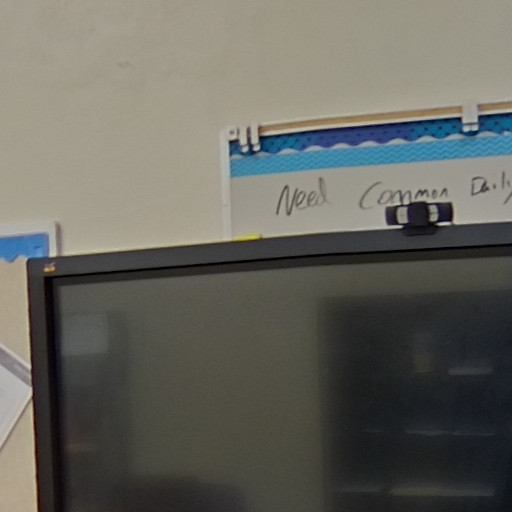 Need Common Daily